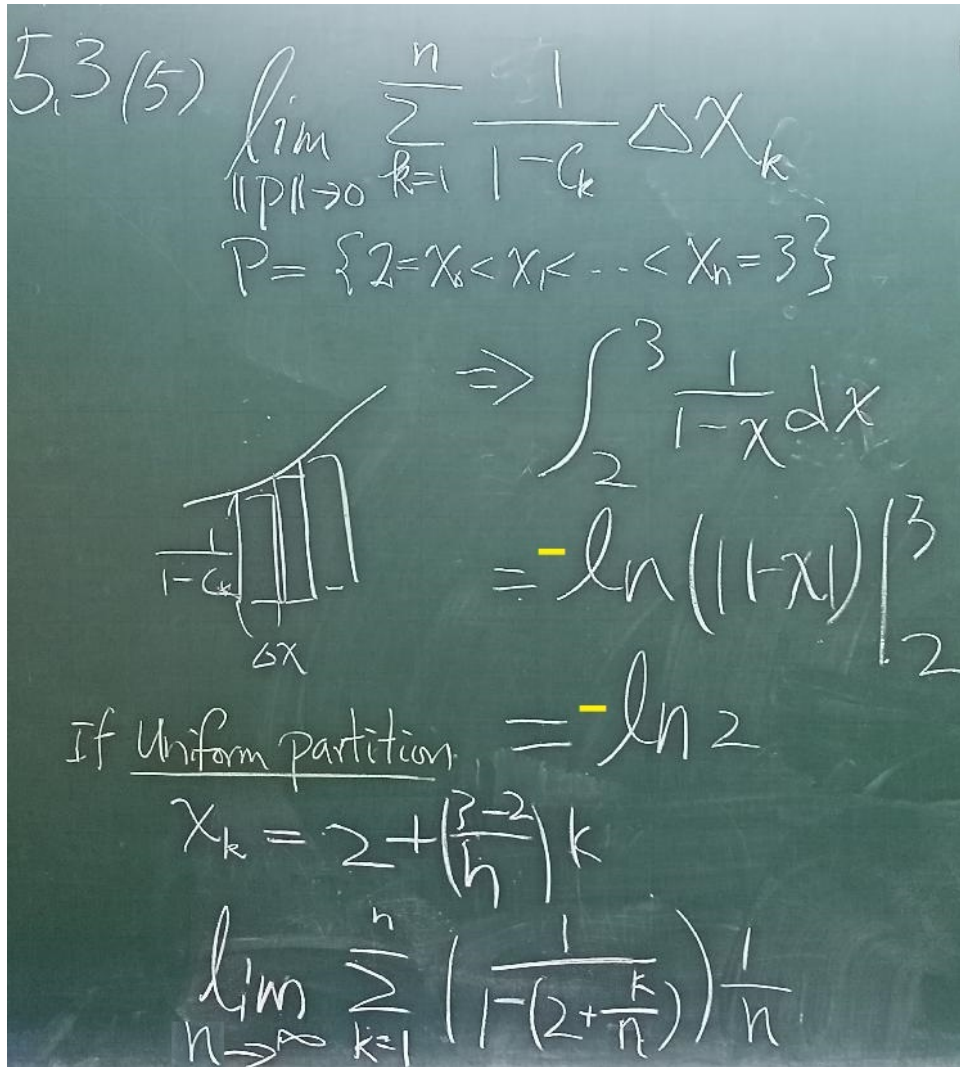 5.3 (5) lim ‖P‖→0 n Σ k=1 1/(1-Cₖ) ΔXₖ
P = {2=X₀<X₁<...<Xₙ=3}
⇒ ∫₂³ 1/(1-x) dx
1/(1-Cₖ)
Δx
= -ln(|1-x|)|₂³
= -ln 2
If Uniform partition.
Xₖ = 2 + ((3-2)/n) k
lim n→∞ n Σ k=1 (1/(1-(2+k/n))) 1/n